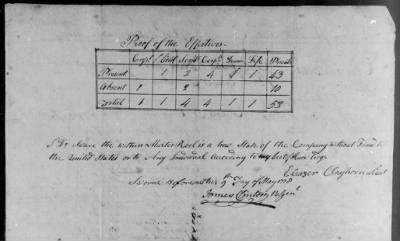 Proof of the Effectives
Capt Lieut Serjt Corpl Drum Fife Privats
Present 1 2 4 1 1 43
Absent 1 2 10
Total 1 1 4 4 1 1 53
I Do Swear the within Muster Roll is a true State of the Company without Fraud to
the United States or to Any Individual according to my best Knowledge
Lieut
Sworn Before me this 9th Day of May 1778
James Clinton B. Genl